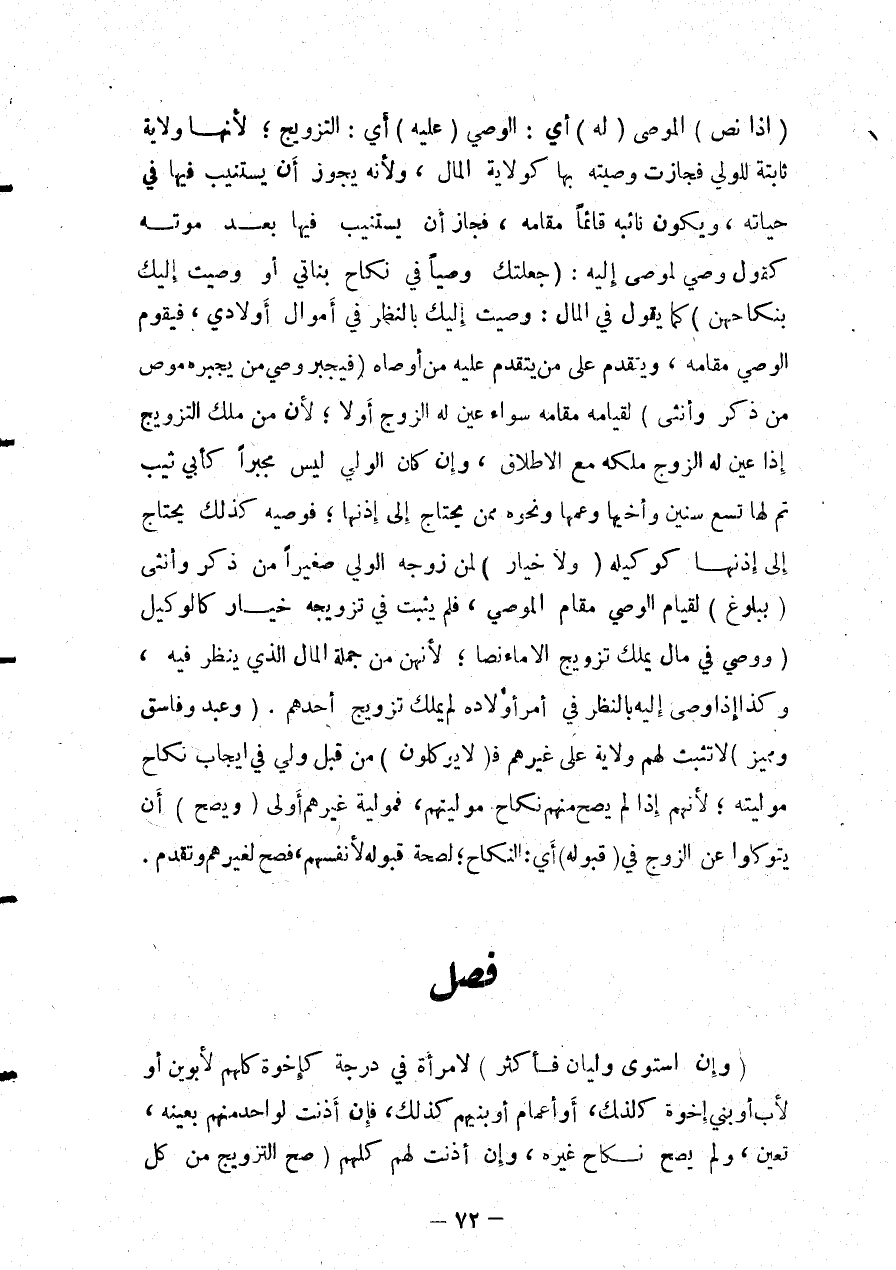 ( اذا نص ) الموصى ( له ) أي : الوصي ( عليه ) أي : التزويج ؛ لأنها ولاية
ثابتة للولي فجازت وصيته بها كولاية المال ، ولأنه يجوز أن يستنيب فيها في
حياته ، ويكون نائبه قائماً مقامه ، فجاز أن يستنيب فيها بعد موته
كقول وصي لموصى إليه : ( جعلتك وصياً في نكاح بناتي أو وصيت إليك
بنكاحهن ) كما يقول في المال : وصيت إليك بالنظر في أموال أولادي ، فيقوم
الوصي مقامه ، ويتقدم على من يتقدم عليه من أوصاه ( فيجبر وصي من يجبره موص
من ذكر وأنثى ) لقيامه مقامه سواء عين له الزوج أولا ؛ لأن من ملك التزويج
إذا عين له الزوج ملكه مع الاطلاق ، وإن كان الولي ليس مجبراً كأبي ثيب
تم لها تسع سنين وأخيها وعمها ونحوه ممن يحتاج إلى إذنها ؛ فوصيه كذلك يحتاج
إلى إذنها كوكيله ( ولا خيار ) لمن زوجه الولي صغيراً من ذكر وأنثى
( ببلوغ ) لقيام الوصي مقام الموصي ، فلم يثبت في تزويجه خيار كالوكيل
( ووصي في مال يملك تزويج الاماء نصا ؛ لأنهن من جملة المال الذي ينظر فيه ،
وكذا إذا وصى إليه بالنظر في أمر أولاده لم يملك تزويج أحدهم . ( وعبد وفاسق
ومميز ) لا تثبت لهم ولاية على غيرهم فـ( لا يوكلون ) من قبل ولي في ايجاب نكاح
موليته ؛ لأنهم إذا لم يصح منهم نكاح موليتهم ، فمولية غيرهم أولى ( ويصح ) أن
يتوكلوا عن الزوج في ( قبوله ) أي : النكاح ؛ لصحة قبوله لأنفسهم ، فصح لغيرهم وتقدم .
فصل
( وإن استوى وليان فأكثر ) لامرأة في درجة كإخوة كلهم لأبوين أو
لأب أو بني إخوة كذلك ، أو أعمام أو بنيهم كذلك ، فإن أذنت لواحد منهم بعينه ،
تعين ، ولم يصح نكاح غيره ، وإن أذنت لهم كلهم ( صح التزويج من كل
– ٧٢ –